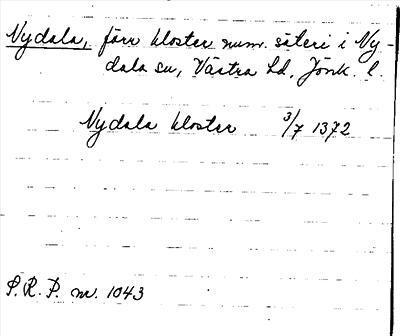 Nydala, förr kloster num. säteri i Ny-
dala sn, Västra hd, Jönk. l.
Nydala kloster 3/7 1372
S.R.P. nr. 1043